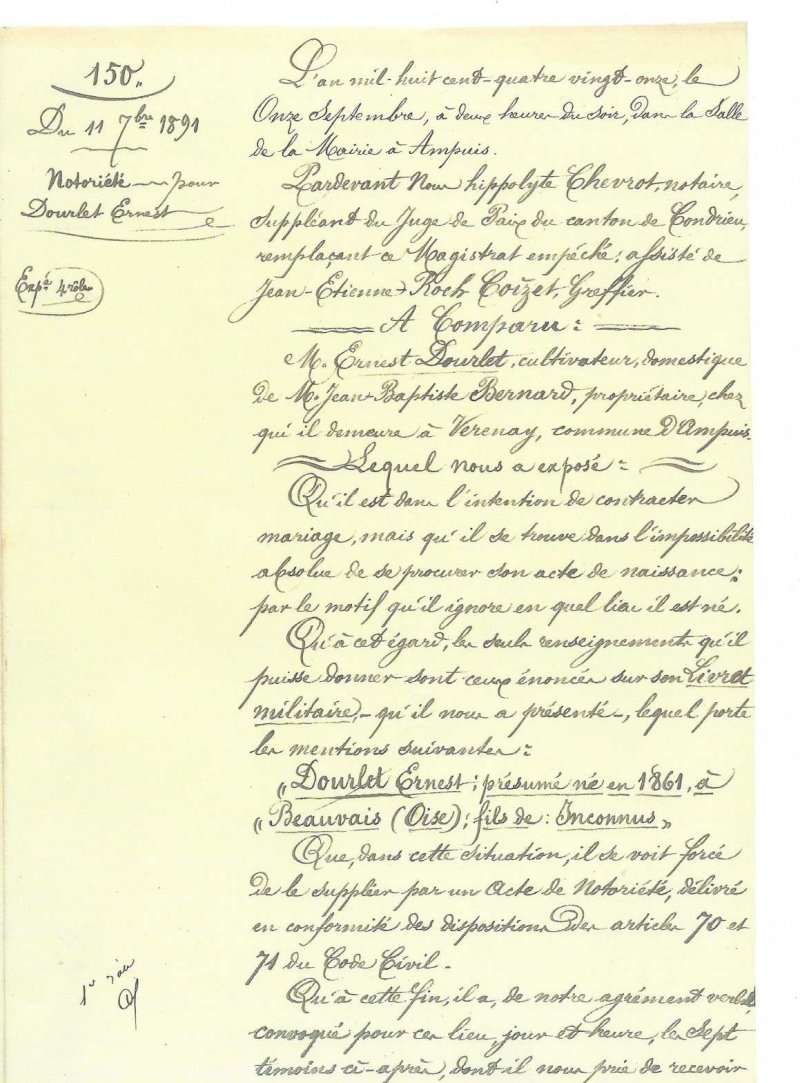 150.
Du 11 7bre 1891
Notoriété pour
Dourlet Ernest
Expé 4 rôles
L'an mil-huit cent-quatre vingt-onze, le
Onze Septembre, à deux heures du soir, dans la Salle
de la Mairie à Ampuis.
Pardevant Nous hippolyte Chevrot, notaire,
Suppléant du Juge de Paix du canton de Condrieu,
remplaçant ce Magistrat empêché; assisté de
Jean-Etienne-Roch Coizet, Greffier.
A Comparu:
M. Ernest Dourlet, cultivateur, domestique
de M. Jean-Baptiste Bernard, propriétaire, chez
qui il demeure à Verenay, commune d'Ampuis.
Lequel nous a exposé:
Qu'il est dans l'intention de contracter
mariage, mais qu'il se trouve dans l'impossibilité
absolue de se procurer son acte de naissance;
par le motif qu'il ignore en quel lieu il est né.
Qu'à cet égard, les seuls renseignements qu'il
puisse donner sont ceux énoncés sur son Livret
militaire,- qu'il nous a présenté-, lequel porte
les mentions suivantes:
"Dourlet Ernest; présumé né en 1861, à
"Beauvais (Oise); fils de: Inconnus"
Que, dans cette situation, il se voit forcé
de le suppléer par un Acte de Notoriété, délivré
en conformité des dispositions des articles 70 et
71 du Code Civil.
Qu'à cette fin, il a, de notre agrément verbal,
convoqué pour ces lieu, jour et heure, les Sept
témoins ci-après, dont il nous prie de recevoir
1er rôle